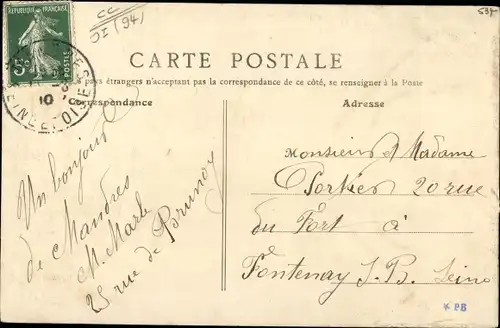 CC
DI (94)
RÉPUBLIQUE FRANÇAISE
5c
POSTES
10
CARTE POSTALE
pays étrangers n'acceptant pas la correspondance de ce côté, se renseigner à la Poste
Correspondance
Adresse
Un bonjour
de Mandres
M. Marle
25 rue de Brunoy
Monsieur et Madame
20 rue
du Fort à
Fontenay S. B. Seine
* PB